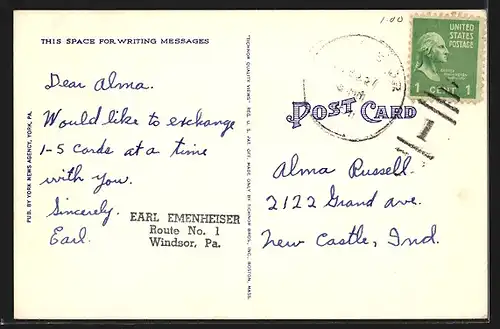 1.00
THIS SPACE FOR WRITING MESSAGES
Dear Alma.
Would like to exchange
1-5 cards at a time
with you.
Sincerely.
Earl.
EARL EMENHEISER
Route No. 1
Windsor, Pa.
PUB. BY YORK NEWS AGENCY, YORK, PA.
"TICHNOR QUALITY VIEWS" REG. U. S. PAT. OFF. MADE ONLY BY TICHNOR BROS., INC., BOSTON, MASS.
UNITED
STATES
POSTAGE
1 CENT 1
1
POST CARD
Alma Russell.
2122 Grand ave.
New Castle, Ind.